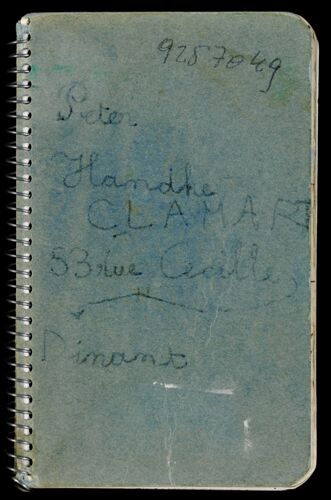 9257049
Peter
Handke
CLAMART
53 rue Cecille
Dinant